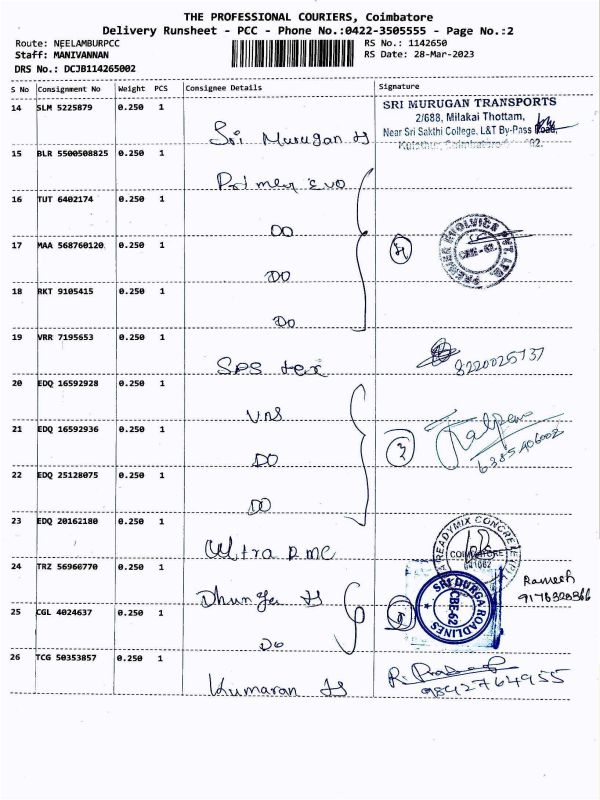 THE PROFESSIONAL COURIERS, Coimbatore
Delivery Runsheet - PCC - Phone No.:0422-3505555 - Page No.:2
Route: NEELAMBURPCC RS No.: 1142650
Staff: MANIVANNAN RS Date: 28-Mar-2023
DRS No.: DCJB114265002
S No Consignment No Weight PCS Consignee Details Signature
14 SLM 5225879 0.250 1
SRI MURUGAN TRANSPORTS
2/688, Milakai Thottam,
Near Sri Sakthi College, L&T By-Pass Road,
Sri Murugan
15 BLR 5500508825 0.250 1
Evo
16 TUT 6402174 0.250 1
DO
17 MAA 568760120 0.250 1
DO
18 RKT 9105415 0.250 1
DO
19 VRR 7195653 0.250 1
SPS tex
8220025737
20 EDQ 16592928 0.250 1
VNS
21 EDQ 16592936 0.250 1
DO
6385406002
22 EDQ 25128075 0.250 1
DO
23 EDQ 20162180 0.250 1
Ultra RMC
READYMIX CONCRETE
COIMBATORE
641062
24 TRZ 56960770 0.250 1
Ramesh
SRI DURGA ROADLINES
CBE-62
25 CGL 4024637 0.250 1
Do
26 TCG 50353857 0.250 1
Kumaran
9842764955